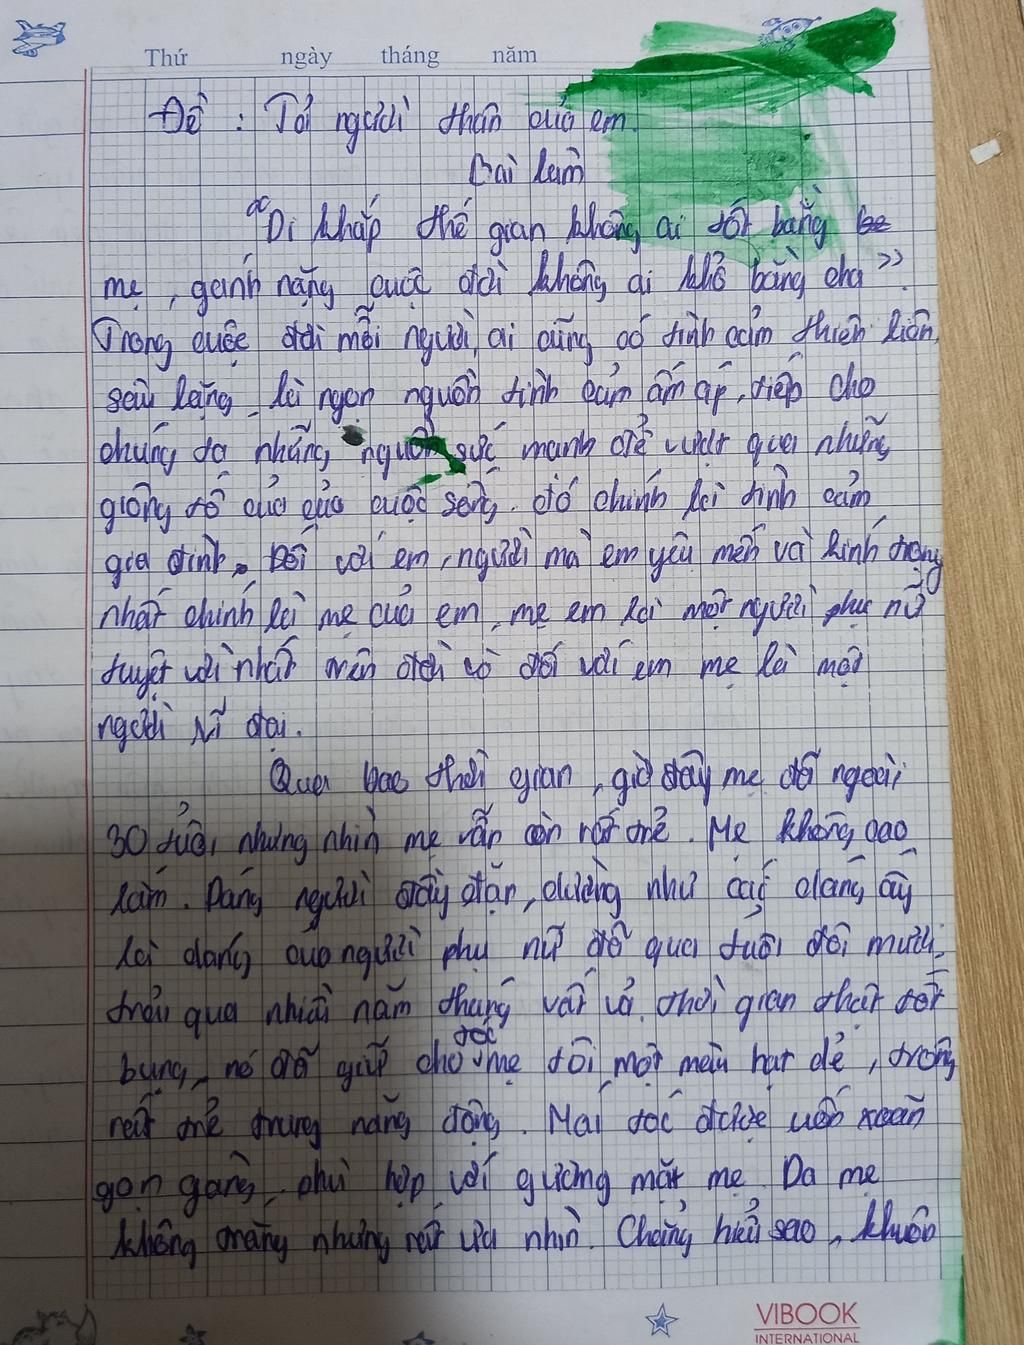 Thứ ngày tháng năm
Đề : Tả người thân của em.
Bài làm
"Đi khắp thế gian không ai tốt bằng
mẹ, gánh nặng cuộc đời không ai khổ bằng cha".
Trong cuộc đời mỗi người, ai cũng có tình cảm thiên liên,
sâu lặng, là ngọn nguồn tình cảm ấm áp, tiếp cho
chúng ta những nguồn sức mạnh để vượt qua những
giông tố của của cuộc sống. đó chính là tình cảm
gia đình. Đối với em, người mà em yêu mến và kính trọng
nhất chính là mẹ của em, mẹ em là một người phụ nữ
tuyệt vời nhất trên đời và đối với em mẹ là một
người vĩ đại.
Qua bao thời gian, giờ đây mẹ đã ngoài
30 tuổi, nhưng nhìn mẹ vẫn còn rất trẻ. Mẹ không cao
lắm. Dáng người đầy đặn, dường như cái dáng ấy
là dáng của người phụ nữ đã qua tuổi đôi mươi,
trải qua nhiều năm tháng vất vả. thời gian thật tốt
bụng, nó đã giúp cho tóc mẹ tôi một màu hạt dẻ, trông
rất trẻ trung năng động. Mái tóc được uốn xoăn
gọn gàng, phù hợp với gương mặt mẹ. Da mẹ
không trắng nhưng rất ưa nhìn. Chẳng hiểu sao, khuôn
VIBOOK
INTERNATIONAL